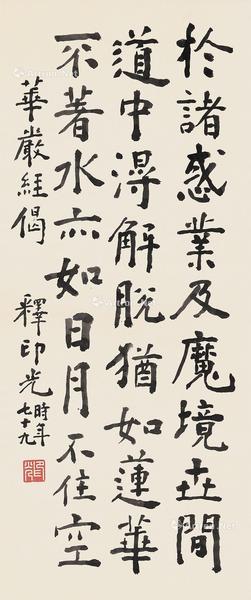 於諸惑業及魔境世間
道中得解脫猶如蓮華
不著水亦如日月不住空
華嚴經偈
釋印光時年七十九